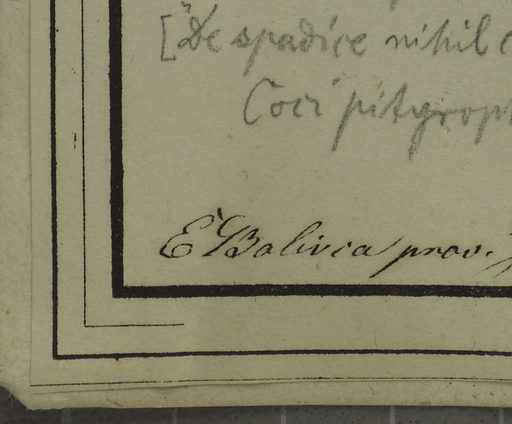 ["De spadice nihil
Coci pityroph
E Bolivia prov.